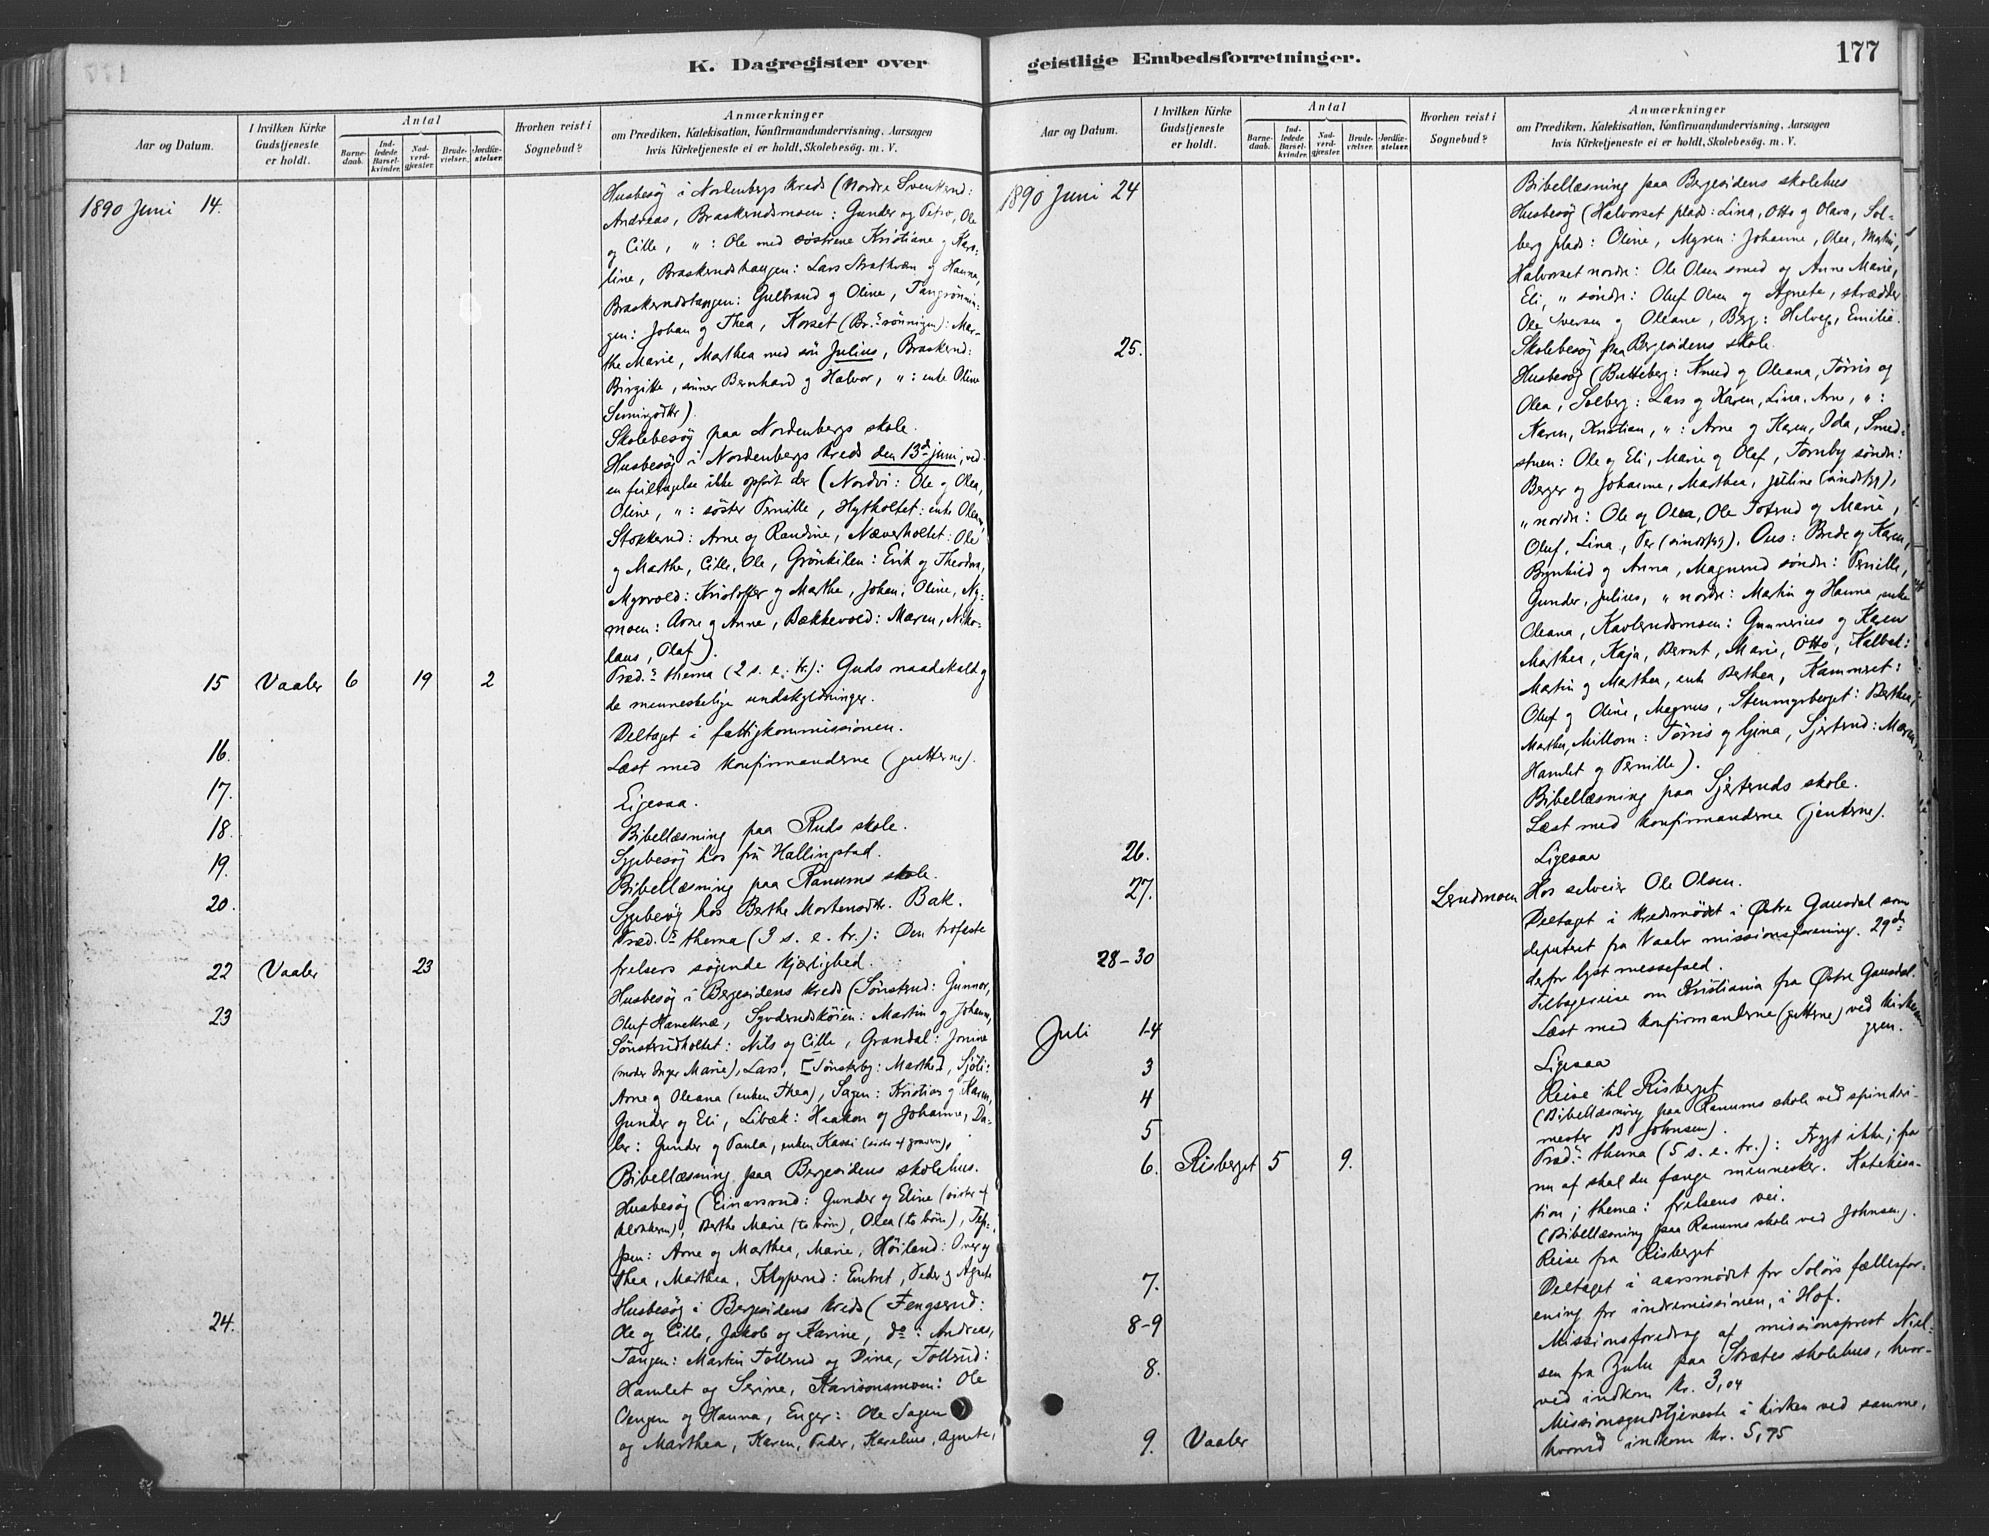 K. Dagregister over
Aar og Datum.
I hvilken Kirke Gudstjeneste er holdt.
Antal
Barne-daab.
Ind-ledede Barsel-kvinder.
Nad-verd-gjæster.
Brude-vielser.
Jordfæ-stelser.
Hvorhen reist i Sognebud?
Anmærkninger
om Prædiken, Katekisation, Konfirmandundervisning, Aarsagen
hvis Kirketjeneste ei er holdt, Skolebesøg. m. V.
1890 Juni 14. Husbesøg i Nordenbergs kreds (Nordre Svenkerud:
Andreas, Braskerudmoen: Gunder og Petra, Ole
og Cille, ": Ole med søstrene Kristiane og Karo-
line, Braskerudhaugen: Lars og Hanna,
Braskerudstangen: Gulbrand og Oline,
gen: Johan og Thea, Korset (Br.s rønningen): Mar-
the Marie, Marthea med søn Julius, Braskerud:
Birgitte, sønner Bernhard og Halvor, ": enke Oline
Simensdttr).
Skolebesøg paa Nordenbergs skole.
Husbesøg i Nordenbergs kreds den 13de juni, ved
en feiltagelse ikke opført der (Nordvi: Ole og Olea,
Oline, ": søster Pernille, Hytholtet: enke Oleana,
Stokkerud: Arne og Randine, Næverholtet: Ole
og Marthe, Cille, Ole, Grönkilen: Erik og Theodora,
Myrvold: Kristoffer og Marthe, Johan, Oline, Ny-
moen: Arne og Anne, Bækkevold: Maren, Niko-
laus, Olaf).
15 Vaaler 6 19 2 Præd.s thema (2 s. e. tr.): Guds naadekald og
de menneskelige undskyldninger.
16. Deltaget i fattigkommissionen.
17. Læst med konfirmanderne (gutterne).
18. Ligesaa.
19. Bibellæsning paa Ruds skole.
Sygebesøg hos fru Hallingstad.
20. Bibellæsning paa Ranums skole.
Sygebesøg hos Berthe Mortensdtr. Bak.
22 Vaaler 23 Præd.s thema (3 s. e. tr.): Den trofaste
frelsers søgende kjærlighed.
23 Husbesøg i Bergesidens kreds (Sønsterud: Gunnor,
Oluf Haneknæ, Syverudskøien: Martin og Johanne,
Sønsterudholtet: Nils og Cille, Grandal: Jonine
(moder Inger Marie), Lars, Sønsterby: Marthea, Sjöli:
Arne og Oleana (enken Thea), Sagen: Kristian og Karen,
Gunder og Eli, Libæk: Haakon og Johanne, Da-
ler: Gunder og Paula, enken Kassi
Bibellæsning paa Bergesidens skolehus.
Husbesøg (Einarsrud: Gunder og Eline (søster af
Berthe Marie (to børn), Olea (to børn), Tep-
pen: Arne og Marthea, Marie, Höiland: Iver og
Thea, Marthea, Klypsrud: Embret, Peder og Agnete
24. Husbesøg i Bergesidens kreds (Fengserud:
Ole og Cille, Jakob og Karine, do: Andreas,
Tangen: Martin Tollsrud og Dina, Tollsrud:
Hamlet og Serine, Karisonsmoen: Ole
Oengen og Hanna, Enger: Ole Sagen
og Marthea, Karen, Peder, Karelius, Agnete,
geistlige Embedsforretninger.
177
Aar og Datum.
I hvilken Kirke Gudstjeneste er holdt.
Antal
Barne-daab.
Ind-ledede Barsel-kvinder.
Nad-verd-gjæster.
Brude-vielser.
Jordfæ-stelser.
Hvorhen reist i Sognebud?
Anmærkninger
om Prædiken, Katekisation, Konfirmandundervisning, Aarsagen
hvis Kirketjeneste ei er holdt, Skolebesøg. m. V.
1890 Juni 24 Bibellæsning paa Bergesidens skolehus
Husbesøg (Halvorset plads: Lina, Otto og Olava, Sol-
berg plads: Oline, Myren: Johanne, Olea, Martin,
Halvorset nordre: Ole Olsen smed og Anne Marie,
Eli, " søndre: Oluf Olsen og Agnete, skrædder
Ole Iversen og Oleane, Berg: Helvig, Emilie.
25. Skolebesøg paa Bergesidens skole.
Husbesøg (Butteberg: Knud og Oleana, Törris og
Olea, Solberg: Lars og Karen, Lina, Arne, ":
Karen, Kristian, ": Arne og Karen, Ida, Smed-
stuen: Ole og Eli, Marie og Olaf, Tornby søndre:
Berger og Johanne, Marthea, Juline (sindssyg),
" nordre: Ole og Olea, Ole Totrud og Marie,
Oluf, Lina, Per (sindssyg), Ous: Brede og Karen,
Brynhild og Anna, Magnerud søndre: Pernille,
Gunder, Julius, " nordre: Martin og Hanna, enke
Oleana, Kavlerudmoen: Gunnerius og Karen
Marthea, Kaja, Bernt, Marie, Otto, Kalbæk:
Martin og Marthea, enke Berthea, Kamorset:
Oluf og Oline, Magnus, Stenmyrberget: Berthea,
Marthea, Millom: Törris og Gina, Sjertrud: Maren,
Hamlet og Pernille).
Bibellæsning paa Sjertruds skole.
26. Læst med konfirmanderne (jenterne).
27. Ligesaa
Lerudmoen Hos selveier Ole Olsen.
28-30 Deltaget i kredsmødet i Østre Gausdal som
deputeret fra Vaaler missionsforening. 29de
derfor lyst messefald.
Juli 1-4 Tilbagereise om Kristiania fra Østre Gausdal.
3 Læst med konfirmanderne (gutterne) ved kirkesan-
geren.
4 Ligesaa
5 Reise til Risberget
(Bibellæsning paa Ranums skole ved spinderi-
mester B Johnsen).
6. Risberget 5 9. Præd.s thema (5 s. e. tr.): Frygt ikke; fra
nu af skal du fange mennesker. Katekisa-
tion; thema: frelsens vei.
(Bibellæsning paa Ranums skole ved Johnsen).
7. Reise fra Risberget
8-9 Deltaget i aarsmødet for Solørs fællesfor-
ening for indremissionen, i Hof.
8. Missionsforedrag af missionsprest Niel-
sen fra Zulu paa Strætes skolehus, hvor-
ved indkom kr. 3,04
9. Vaaler Missionsgudstjeneste i kirken ved samme,
hvorved indkom kr. 5,75